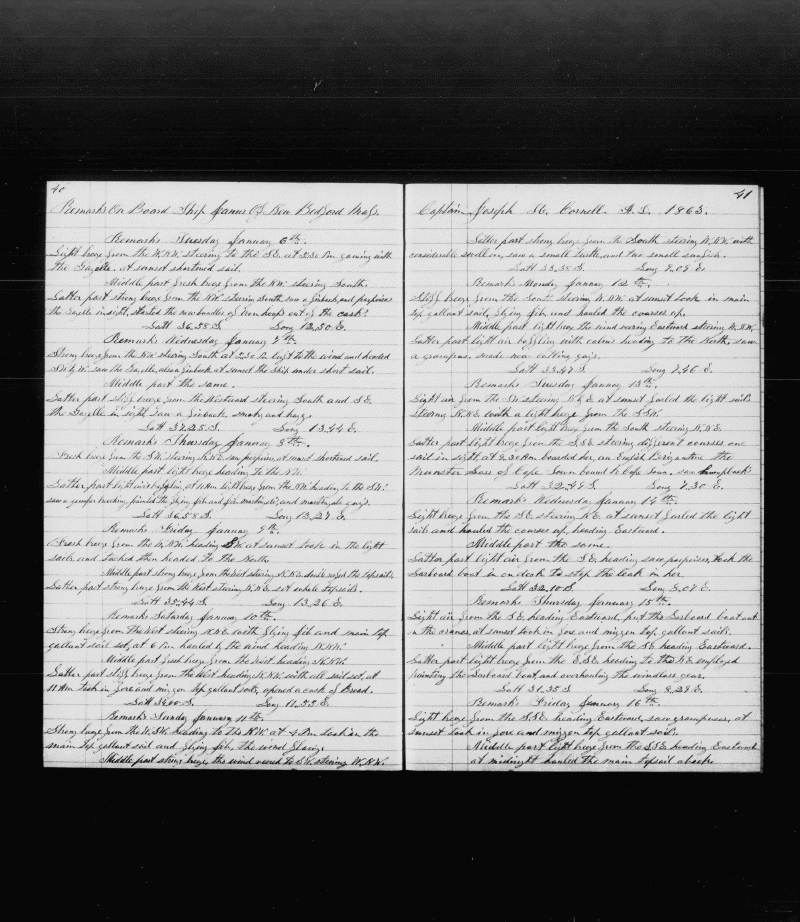 40
Remarks On Board Ship Janus Of New Bedford Mass.
Remarks Tuesday January 6th.
Light breeze from the W.N.W. steering to the S.E. at 2.30 Pm gaming with
the Gazelle. at sunset shortened sail.
Middle part fresh breeze from the N.W. steering South.
Latter part strong breeze from the N.W. steering South, saw a finback, and porpoises
the Gazelle in sight, started the new bundles of iron hoops out of the cask?
Latt 36.58 S. Long 12.50 E.
Remarks Wednesday January 7th.
Strong breeze from the N.W. steering South at 2.30 Pm luft to the wind and headed
S.W. by W. saw the Gazelle, also a finback, at sunset the Ship under short sail.
Middle part the same.
Latter part stiff breeze from the Westward steering South and S.E.
the Gazelle in sight saw a finback, smoky and hazy.
Latt 37.25 S. Long 13.44 E.
Remarks Thursday January 8th.
Fresh breeze from the S.W. steering N.N.E. saw porpoises, at sunset shortened sail.
Middle part light breeze heading to the N.W.
Latter part light airs, at 11 Am light breeze from the N.W. heading to the S.W.
saw a jumper breaching, painted the flying jib and jib martingale, and martingale guys.
Latt 36.58 S. Long 13.27 E.
Remarks Friday January 9th.
Fresh breeze from the W.N.W. heading S.W. at sunset took in the light
sails and tacked then headed to the North.
Middle part strong breeze from the West steering N.N.E. double reefed the topsails.
Latter part strong breeze from the West steering N.N.E. set whole topsails.
Latt 35.44 S. Long 13.26 E.
Remarks Saturday January 10th.
Strong breeze from the West steering N.N.E. with flying jib and main top
gallant sail set, at 6 Pm hauled by the wind heading N.N.W.
Middle part fresh breeze from the West heading N.N.W.
Latter part stiff breeze from the West heading N.N.W. with all sail set, at
11 Am took in fore and mizzen top gallant sails, opened a cask of Bread.
Latt 34.00 S. Long 11.53 E.
Remarks Sunday January 11th.
Strong breeze from the W.S.W. heading to the N.W. at 4 Pm took in the
main top gallant sail and flying jib, the wind
Middle part strong breeze, the wind veered to S.W. steering W.N.W.
41
Captain Joseph H. Cornell. A.D. 1863.
Latter part strong breeze from the South steering W.N.W. with
considerable swell on, saw a small turtle, and two small sunfish.
Latt 33.38 S. Long 9.09 E.
Remarks Monday January 12th.
Stiff breeze from the South steering W.N.W. at sunset took in main
top gallant sail, flying jib and hauled the courses up.
Middle part light breeze the wind veering Eastward steering W.N.W.
Latter part light air baffling with calms heading to the North, saw
a grampus. made new guys.
Latt 33.47 S. Long 7.46 E.
Remarks Tuesday January 13th.
Light air from the S.W. steering N.E. at sunset furled the light sails
steering N.N.E. with a light breeze from the S.S.W.
Middle part light breeze from the South steering N.N.E.
Latter part light breeze from the S.S.E. steering different courses one
sail in sight, at 9.30 Am boarded her, an English Brigantine the
Munster Lass of Cape Town bound to Cape Town. saw humpbacks
Latt 32.49 S. Long 7.30 E.
Remarks Wednesday January 14th.
Light breeze from the S.E. steering N.E. at sunset furled the light
sails and hauled the courses up, heading Eastward.
Middle part the same.
Latter part light air from the S.E. heading saw porpoises, took the
Larboard boat in on deck to stop the leak in her.
Latt 32.10 S. Long 8.09 E.
Remarks Thursday January 15th.
Light air from the S.E. heading Eastward, put the Larboard boat out
on the cranes, at sunset took in fore and mizzen top gallant sails.
Middle part light breeze from the S.E. heading Eastward.
Latter part light breeze from the E.S.E. heading to the N.E. employed
painting the Larboard boat and overhauling the windlass gear.
Latt 31.35 S. Long 8.29 E.
Remarks Friday January 16th.
Light breeze from the S.S.E. heading Eastward, saw grampuses, at
sunset took in fore and mizzen top gallant sails.
Middle part light breeze from the S.S.E. heading Eastward
at midnight hauled the main topsail aback